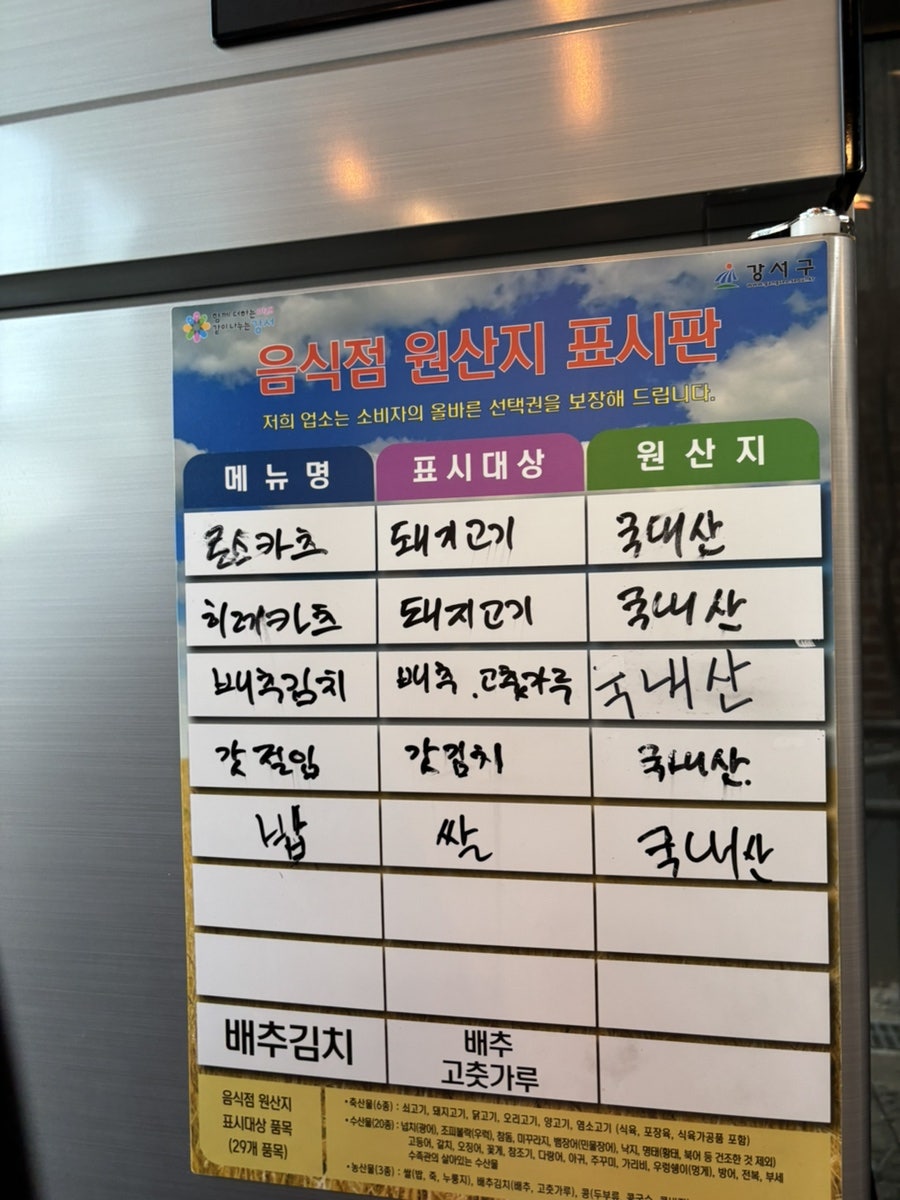 함께 더하는
같이 나누는 강서
강서구
음식점 원산지 표시판
저희 업소는 소비자의 올바른 선택권을 보장해 드립니다.
메뉴명 표시대상 원산지
로스카츠 돼지고기 국내산
히레카츠 돼지고기 국내산
배추김치 배추.고춧가루 국내산
갓절임 갓김치 국내산.
밥 쌀 국내산
배추김치 배추 고춧가루
음식점 원산지
표시대상 품목
(29개 품목)
•축산물(6종) : 쇠고기, 돼지고기, 닭고기, 오리고기, 양고기, 염소고기 (식육, 포장육, 식육가공품 포함)
•수산물(20종) : 넙치(광어), 조피볼락(우럭), 참돔, 미꾸라지, 뱀장어(민물장어), 낙지, 명태(황태, 북어 등 건조한 것 제외)
고등어, 갈치, 오징어, 꽃게, 참조기, 다랑어, 아귀, 주꾸미, 가리비, 우렁쉥이(멍게), 방어, 전복, 부세
수족관의 살아있는 수산물
•농산물(3종) : 쌀(밥, 죽, 누룽지), 배추김치(배추, 고춧가루), 콩(두부류,